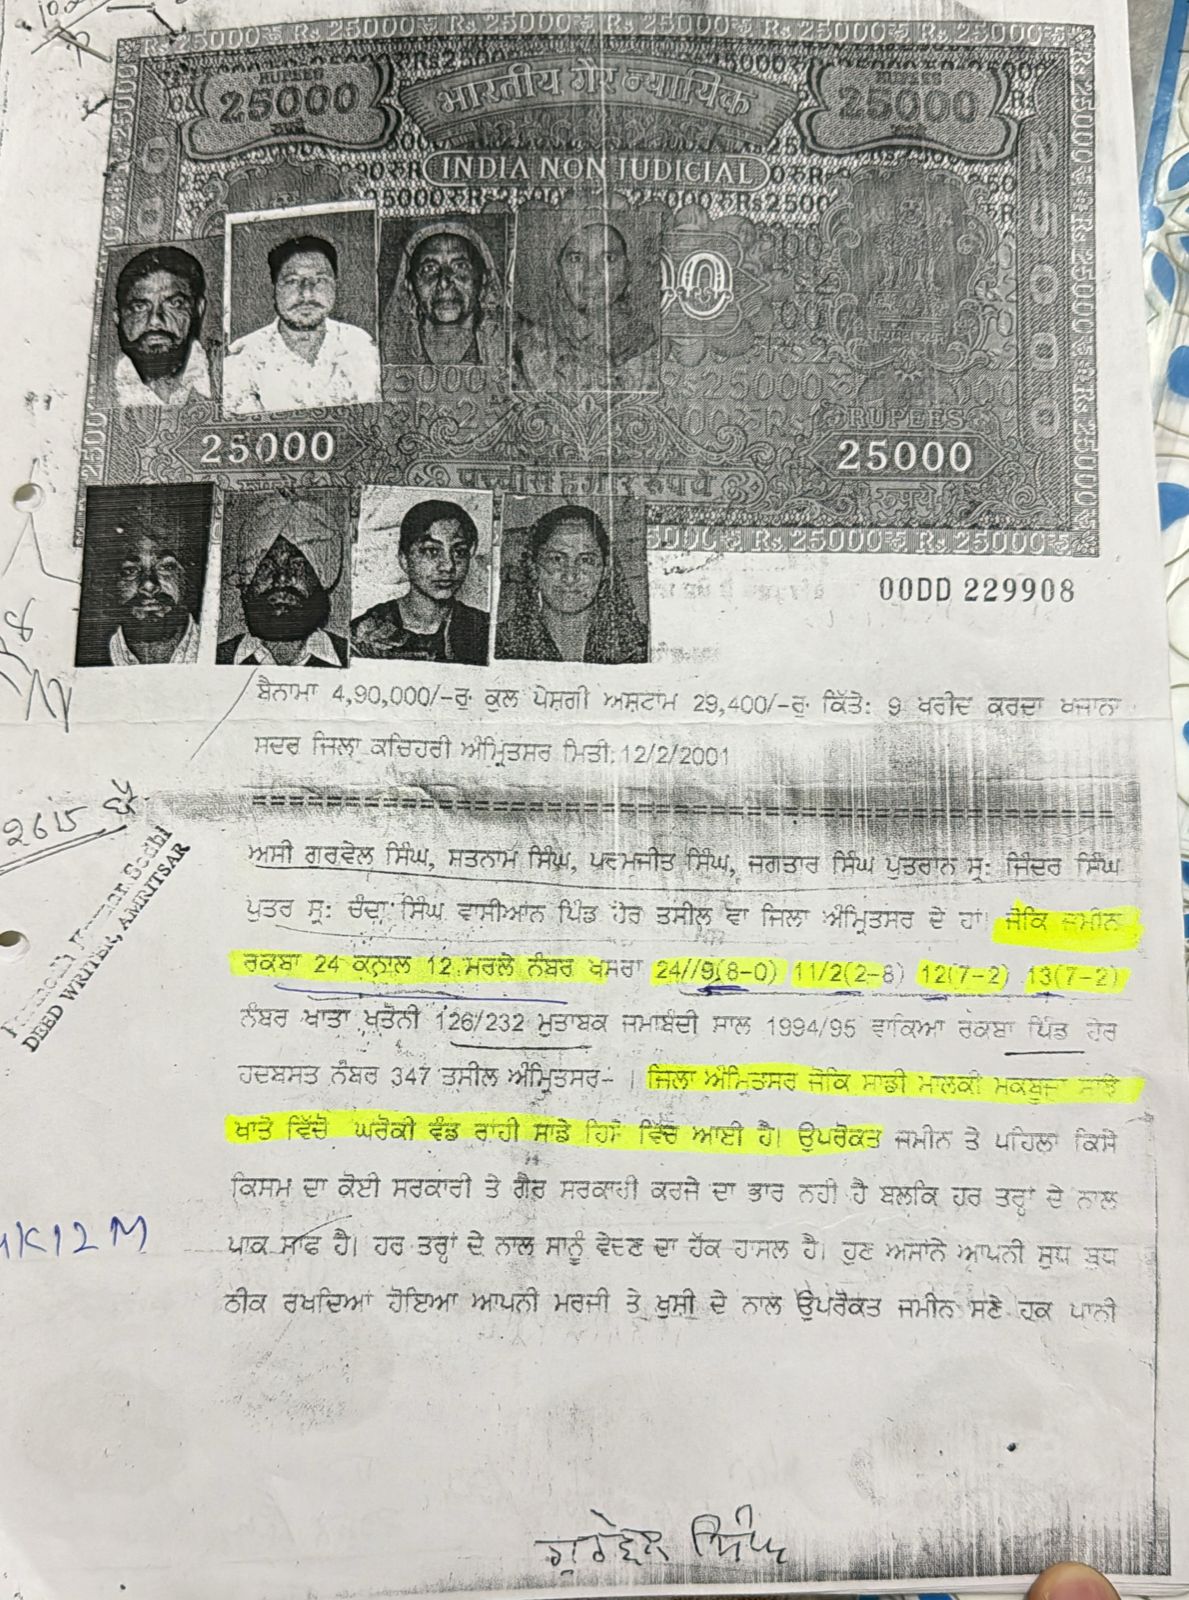 Rs 25000 रु Rs 25000 रु Rs 25000 रु Rs 25000 रु Rs 25000 रु
RUPEES
25000
भारतीय गैर न्यायिक
25000
INDIA NON JUDICIAL
RUPEES
25000
25000
पच्चीस हजार रुपये
रुपये
Rs 25000 रु Rs 25000 रु
00DD 229908
ਬੈਨਾਮਾ 4,90,000/-ਰੁ ਕੁਲ ਪੇਸ਼ਗੀ ਅਸ਼ਟਾਮ 29,400/-ਰੁ ਕਿੱਤੇ: 9 ਖਰੀਦ ਕਰਦਾ ਖਜਾਨਾ
ਸਦਰ ਜਿਲਾ ਕਚਿਹਰੀ ਅੰਮ੍ਰਿਤਸਰ ਮਿਤੀ:12/2/2001
ਅਸੀ ਗੁਰਵੇਲ ਸਿੰਘ, ਸਤਨਾਮ ਸਿੰਘ, ਪਰਮਜੀਤ ਸਿੰਘ, ਜਗਤਾਰ ਸਿੰਘ ਪੁਤਰਾਨ ਸ੍ਰ: ਜਿੰਦਰ ਸਿੰਘ
ਪੁਤਰ ਸ੍ਰ: ਚੰਦਾ ਸਿੰਘ ਵਾਸੀਆਨ ਪਿੰਡ ਹੇਰ ਤਸੀਲ ਵਾ ਜਿਲਾ ਅੰਮ੍ਰਿਤਸਰ ਦੇ ਹਾਂ। ਜੋਕਿ ਜਮੀਨ
ਰਕਬਾ 24 ਕਨਾਲ 12 ਮਰਲੇ ਨੰਬਰ ਖਸਰਾ 24//9(8-0) 11/2(2-8) 12(7-2) 13(7-2)
ਨੰਬਰ ਖਾਤਾ ਖਤੌਨੀ 126/232 ਮੁਤਾਬਕ ਜਮਾਬੰਦੀ ਸਾਲ 1994/95 ਵਾਕਿਆ ਰਕਬਾ ਪਿੰਡ ਹੇਰ
ਹਦਬਸਤ ਨੰਬਰ 347 ਤਸੀਲ ਅੰਮ੍ਰਿਤਸਰ- । ਜਿਲਾ ਅੰਮ੍ਰਿਤਸਰ ਜੋਕਿ ਸਾਡੀ ਮਾਲਕੀ ਮਕਬੂਜਾ ਸਾਂਝੇ
ਖਾਤੇ ਵਿੱਚੋ ਘਰੋਕੀ ਵੰਡ ਰਾਹੀ ਸਾਡੇ ਹਿਸੇ ਵਿੱਚ ਆਈ ਹੈ। ਉਪਰੋਕਤ ਜਮੀਨ ਤੇ ਪਹਿਲਾ ਕਿਸੇ
ਕਿਸਮ ਦਾ ਕੋਈ ਸਰਕਾਰੀ ਤੇ ਗੈਰ ਸਰਕਾਰੀ ਕਰਜੇ ਦਾ ਭਾਰ ਨਹੀ ਹੈ ਬਲਕਿ ਹਰ ਤਰ੍ਹਾਂ ਦੇ ਨਾਲ
ਪਾਕ ਸਾਫ ਹੈ। ਹਰ ਤਰ੍ਹਾਂ ਦੇ ਨਾਲ ਸਾਨੂੰ ਵੇਚਣ ਦਾ ਹੱਕ ਹਾਸਲ ਹੈ। ਹੁਣ ਅਸਾਂਨੇ ਆਪਨੀ ਸੁਧ ਬੁਧ
ਠੀਕ ਰਖਦਿਆਂ ਹੋਇਆ ਆਪਨੀ ਮਰਜੀ ਤੇ ਖੁਸ਼ੀ ਦੇ ਨਾਲ ਉਪਰੋਕਤ ਜਮੀਨ ਸਣੇ ਹਕ ਪਾਨੀ
DEED WRITER, AMRITSAR
K12M
ਗੁਰਵੇਲ ਸਿੰਘ